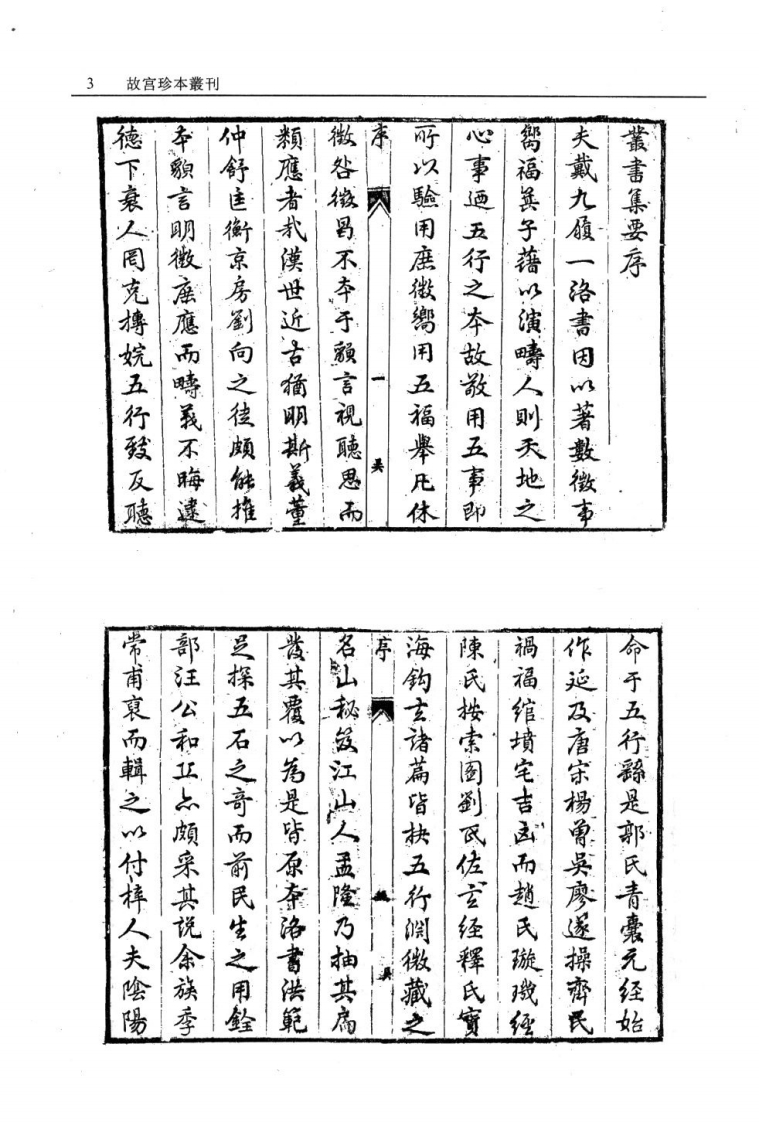 3 故宮珍本叢刊
叢書集要序
夫戴九履一洛書因以著數徵事
嚮福箕子藉以演疇人則天地之
心事迺五行之本故敬用五事即
所以驗用庶徵嚮用五福舉凡休
序 一 吳
徵咎徵曷不本于貌言視聽思而
類應者哉漢世近古猶明斯義董
仲舒匡衡京房劉向之徒頗能推
本貌言明徵庶應而疇義不晦逮
德下衰人罔克摶婉五行致反聽
命于五行繇是郭氏青囊元經始
作延及唐宋楊曾吳廖遂操齊民
禍福綰墳宅吉凶而趙氏璇璣經
陳氏按索圖劉氏佐玄經釋氏寶
海鈎玄諸篇皆抉五行淵微藏之
序 吳
名山秘笈江山人孟隆乃抽其扃
發其覆以為是皆原本洛書洪範
足探五石之奇而前民生之用銓
部汪公和正亦頗采其說余族季
常甫裒而輯之以付梓人夫陰陽